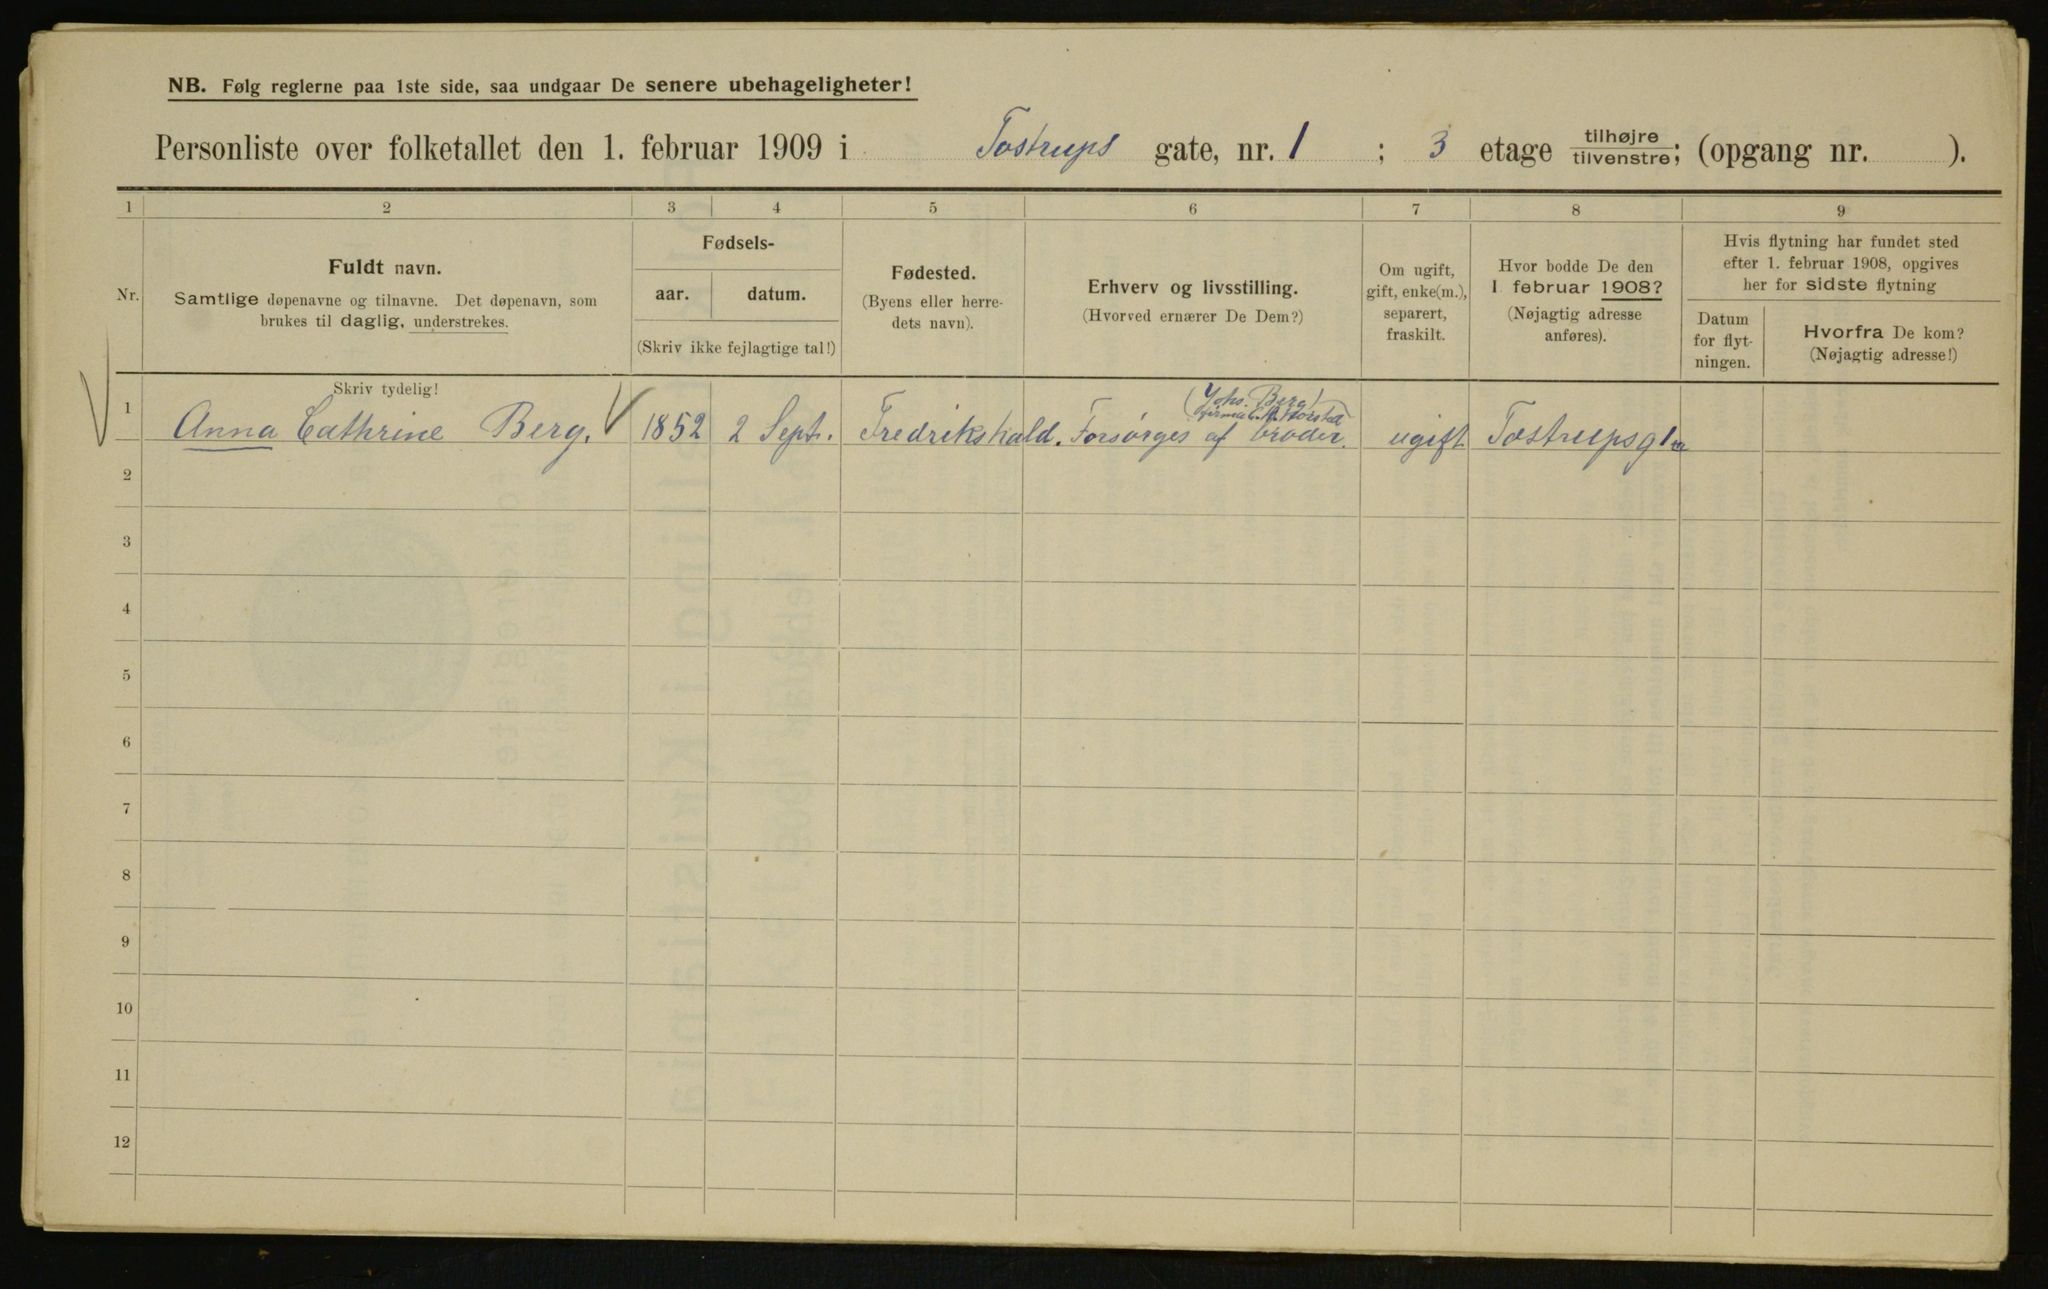 NB. Følg reglerne paa 1ste side, saa undgaar De senere ubehageligheter!
Personliste over folketallet den 1. februar 1909 i Tostrups gate, nr. 1 ; 3 etage tilhøjre/tilvenstre; (opgang nr. ).
1 2 3 4 5 6 7 8 9
Nr.
Fuldt navn.
Samtlige døpenavne og tilnavne. Det døpenavn, som
brukes til daglig, understrekes.
Fødsels-
aar. datum.
(Skriv ikke fejlagtige tal!)
Fødested.
(Byens eller herre-
dets navn).
Erhverv og livsstilling.
(Hvorved ernærer De Dem?)
Om ugift,
gift, enke(m.),
separert,
fraskilt.
Hvor bodde De den
1 februar 1908?
(Nøjagtig adresse
anføres).
Hvis flytning har fundet sted
efter 1. februar 1908, opgives
her for sidste flytning
Datum
for flyt-
ningen.
Hvorfra De kom?
(Nøjagtig adresse!)
Skriv tydelig!
(Johs. Berg)
1 Anna Cathrine Berg. 1852 2 Sept. Fredrikshald. Forsørges af broder. ugift Tostrupsg 1
2
3
4
5
6
7
8
9
10
11
12